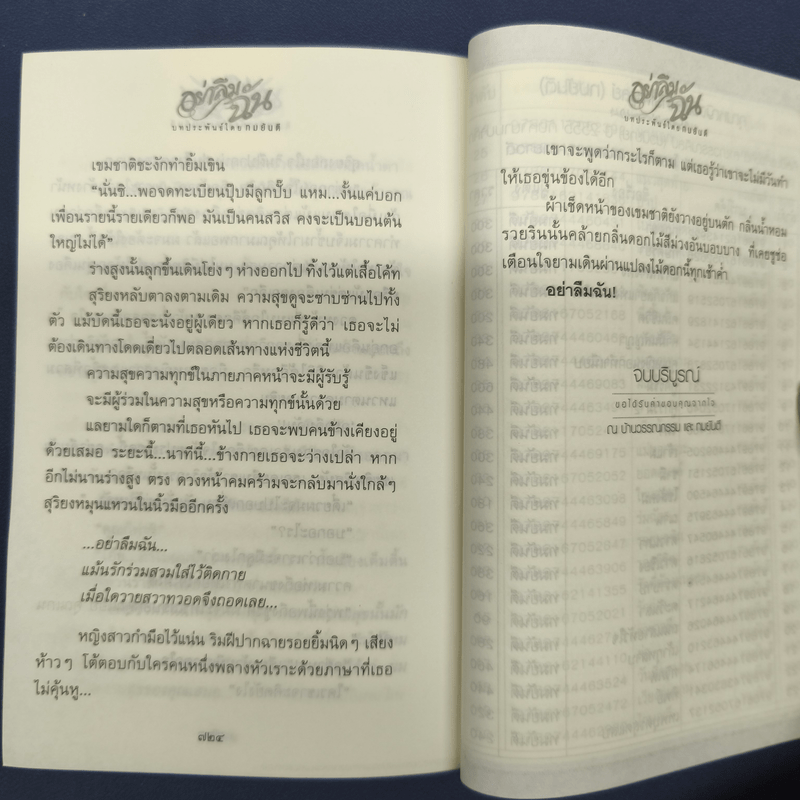 อย่าลืมฉัน
บทประพันธ์โดย ทมยันตี
เขมชาติชะงักทำยิ้มเขิน
“นั่นซิ...พอจดทะเบียนปุ๊บมีลูกปั๊บ แหม...งั้นแค่บอก
เพื่อนรายนี้รายเดียวก็พอ มันเป็นคนสวิส คงจะเป็นบอนตัน
ใหญ่ไม่ได้”
ร่างสูงนั้นลุกขึ้นเดินโย่งๆ ห่างออกไป ทิ้งไว้แต่เสื้อโค้ท
สุริยงหลับตาลงตามเดิม ความสุขดูจะซาบซ่านไปทั้ง
ตัว แม้บัดนี้เธอจะนั่งอยู่ผู้เดียว หากเธอก็รู้ดีว่า เธอจะไม่
ต้องเดินทางโดดเดี่ยวไปตลอดเส้นทางแห่งชีวิตนี้
ความสุขความทุกข์ในภายภาคหน้าจะมีผู้รับรู้
จะมีผู้ร่วมในความสุขหรือความทุกข์นั้นด้วย
แลยามใดก็ตามที่เธอหันไป เธอจะพบคนข้างเคียงอยู่
ด้วยเสมอ ระยะนี้...นาทีนี้...ข้างกายเธอจะว่างเปล่า หาก
อีกไม่นานร่างสูง ตรง ดวงหน้าคมคร้ามจะกลับมานั่งใกล้ๆ
สุริยงหมุนแหวนในนิ้วมืออีกครั้ง
...อย่าลืมฉัน...
แม้นรักร่วมสวมใส่ไว้ติดกาย
เมื่อใดวายสวาทวอดจึงถอดเลย...
หญิงสาวกำมือไว้แน่น ริมฝีปากฉายรอยยิ้มนิดๆ เสียง
ห้าวๆ โต้ตอบกับใครคนหนึ่งพลางหัวเราะด้วยภาษาที่เธอ
ไม่คุ้นหู...
๗๒๔
อย่าลืมฉัน
บทประพันธ์โดย ทมยันตี
เขาจะพูดว่ากระไรก็ตาม แต่เธอรู้ว่าเขาจะไม่มีวันทำ
ให้เธอขุ่นข้องได้อีก
ผ้าเช็ดหน้าของเขมชาติยังวางอยู่บนตัก กลิ่นน้ำหอม
รวยรินนั้นคล้ายกลิ่นดอกไม้สีม่วงอันบอบบาง ที่เคยชูช่อ
เตือนใจยามเดินผ่านแปลงไม้ดอกนี้ทุกเช้าค่ำ
อย่าลืมฉัน!
จบบริบูรณ์
ขอได้รับคำขอบคุณจากใจ
ณ บ้านวรรณกรรม และ ทมยันตี